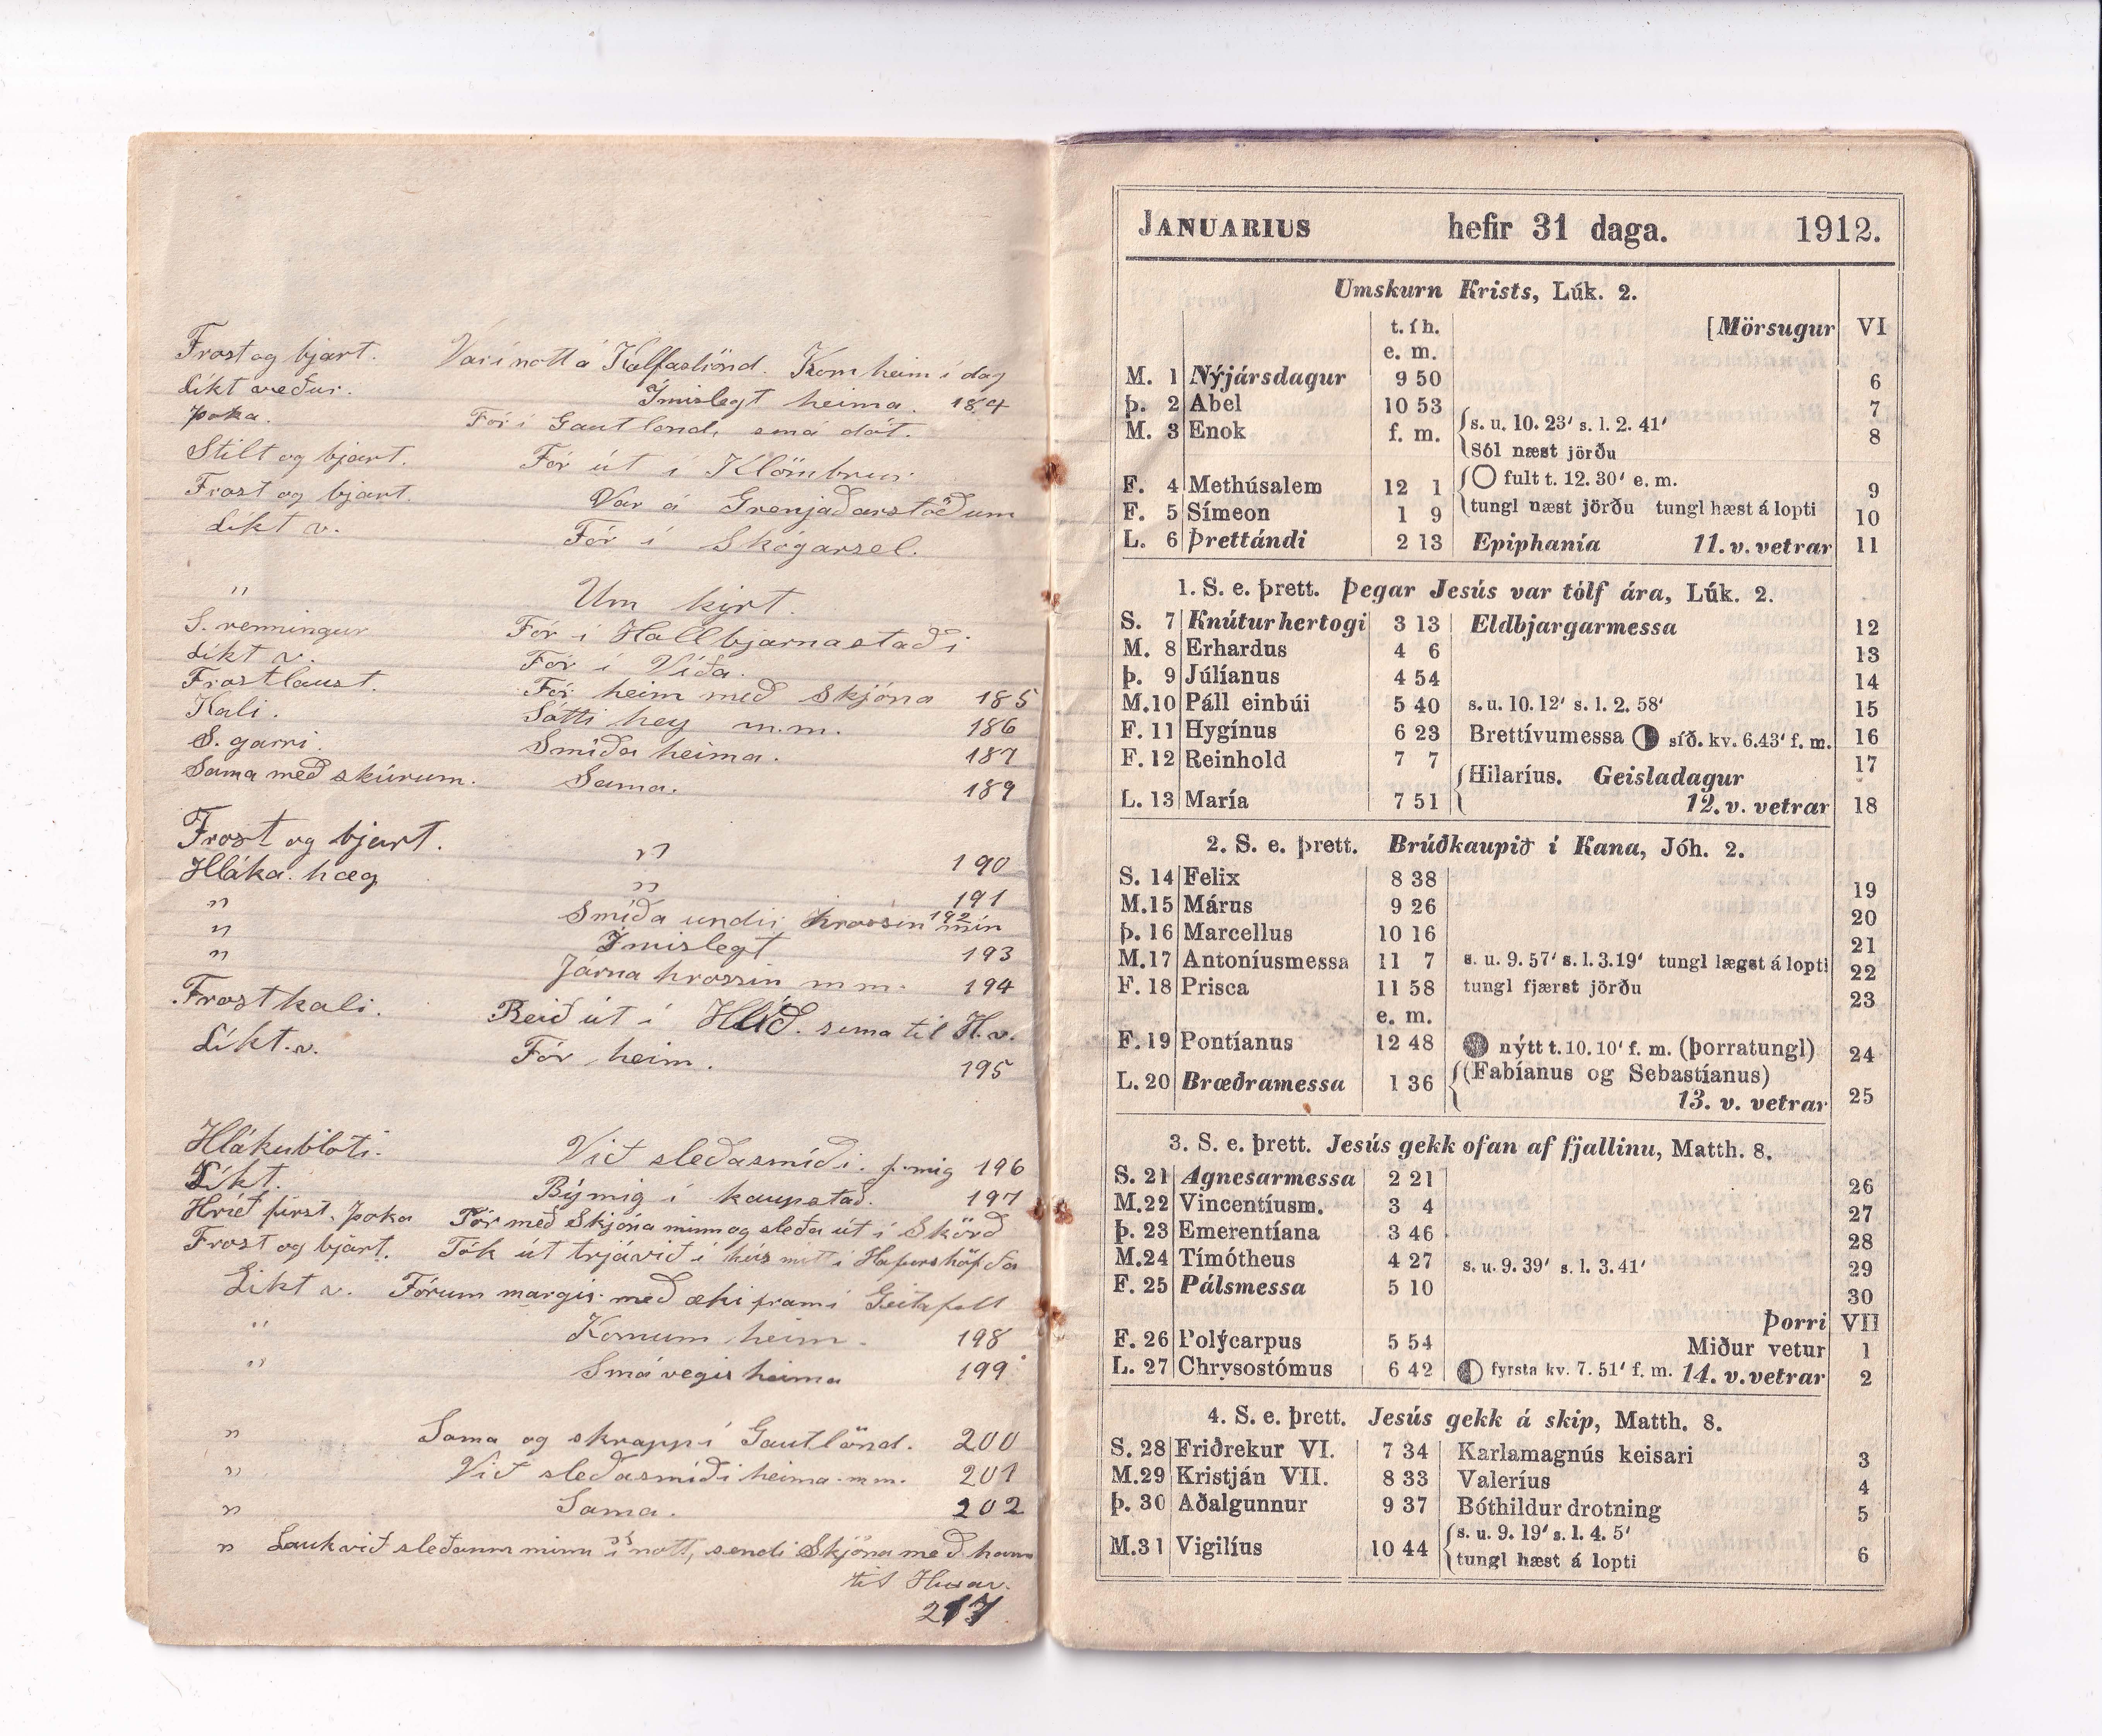 Frost og bjart. Var í nótt á Kálfaströnd. Kom heim í dag
Líkt veður. Ímislegt heima. 184
Þoka. Fór í Gautlönd, smá dót.
Stilt og bjart. Fór út í Klömbrur
Frost og bjart. Var á Grenjaðarstöðum
Líkt v. Fór í Skógarsel.
" Um kjrt.
S. renningur Fór í Hallbjarnastaði
Líkt v. Fór í Víða.
Frostlaust. Fór heim með Skjóna 185
Kali. Sótti hey m.m. 186
S. garri. Smíða heima. 187
Sama með skúrum. Sama. 189
Frost og bjart. " 190
Hláka hæg " 191
" Smíða undir hrossin mín 192
" Ímislegt 193
" Járna hrossin m m. 194
Frostkali. Reið út í Hlíð. sema til H.v.
Líkt.v. Fór heim. 195
Hlákubloti. Við sleðasmíði. f. mig 196
Líkt. Bý mig í kaupstað. 197
Hríð fürst. Þoka Fór með Skjóna minn og sleða út í Skörð
Frost og bjart. Tók út trjávið í hús mitt í Hafurshöfða
Líkt v. Fórum margir með æki fram í Geitafell
" Komum heim. 198
" Smávegis heima 199
" Sama og skrapp í Gautlönd. 200
" Við sleðasmíði heima m m. 201
" Sama. 202
" Lauk við sleðann minn í nótt, sendi Skjóna með hann
til Husav.
217
JANUARIUS hefir 31 daga. 1912.
Umskurn Krists, Lúk. 2.
t. í h. [Mörsugur VI
e. m.
M. 1 Nýjársdagur 9 50 6
Þ. 2 Abel 10 53 7
s. u. 10. 23′ s. l. 2. 41′
M. 3 Enok f. m. 8
Sól næst jörðu
fult t. 12. 30′ e. m.
F. 4 Methúsalem 12 1 9
tungl næst jörðu tungl hæst á lopti
F. 5 Símeon 1 9 10
L. 6 Þrettándi 2 13 Epiphanía 11. v. vetrar 11
1. S. e. þrett. Þegar Jesús var tólf ára, Lúk. 2.
S. 7 Knútur hertogi 3 13 Eldbjargarmessa 12
M. 8 Erhardus 4 6 13
Þ. 9 Júlíanus 4 54 14
M. 10 Páll einbúi 5 40 s. u. 10. 12′ s. l. 2. 58′ 15
F. 11 Hygínus 6 23 Brettívumessa síð. kv. 6.43′ f. m. 16
F. 12 Reinhold 7 7 17
Hilaríus. Geisladagur
L. 13 María 7 51 12. v. vetrar 18
2. S. e. þrett. Brúðkaupið í Kana, Jóh. 2.
S. 14 Felix 8 38 19
M. 15 Márus 9 26 20
Þ. 16 Marcellus 10 16 21
M. 17 Antoníusmessa 11 7 s. u. 9. 57′ s. l. 3. 19′ tungl lægst á lopti 22
F. 18 Prisca 11 58 tungl fjærst jörðu 23
e. m.
F. 19 Pontíanus 12 48 nýtt t. 10. 10′ f. m. (þorratungl) 24
(Fabíanus og Sebastíanus)
L. 20 Bræðramessa 1 36 13. v. vetrar 25
3. S. e. þrett. Jesús gekk ofan af fjallinu, Matth. 8.
S. 21 Agnesarmessa 2 21 26
M. 22 Vincentíusm. 3 4 27
Þ. 23 Emerentíana 3 46 28
M. 24 Tímótheus 4 27 s. u. 9. 39′ s. l. 3. 41′ 29
F. 25 Pálsmessa 5 10 30
Þorri VII
F. 26 Polýcarpus 5 54 Miður vetur 1
L. 27 Chrysostómus 6 42 fyrsta kv. 7. 51′ f. m. 14. v. vetrar 2
4. S. e. þrett. Jesús gekk á skip, Matth. 8.
S. 28 Friðrekur VI. 7 34 Karlamagnús keisari 3
M. 29 Kristján VII. 8 33 Valeríus 4
Þ. 30 Aðalgunnur 9 37 Bóthildur drotning 5
s. u. 9. 19′ s. l. 4. 5′
M. 31 Vigilíus 10 44 6
tungl hæst á lopti